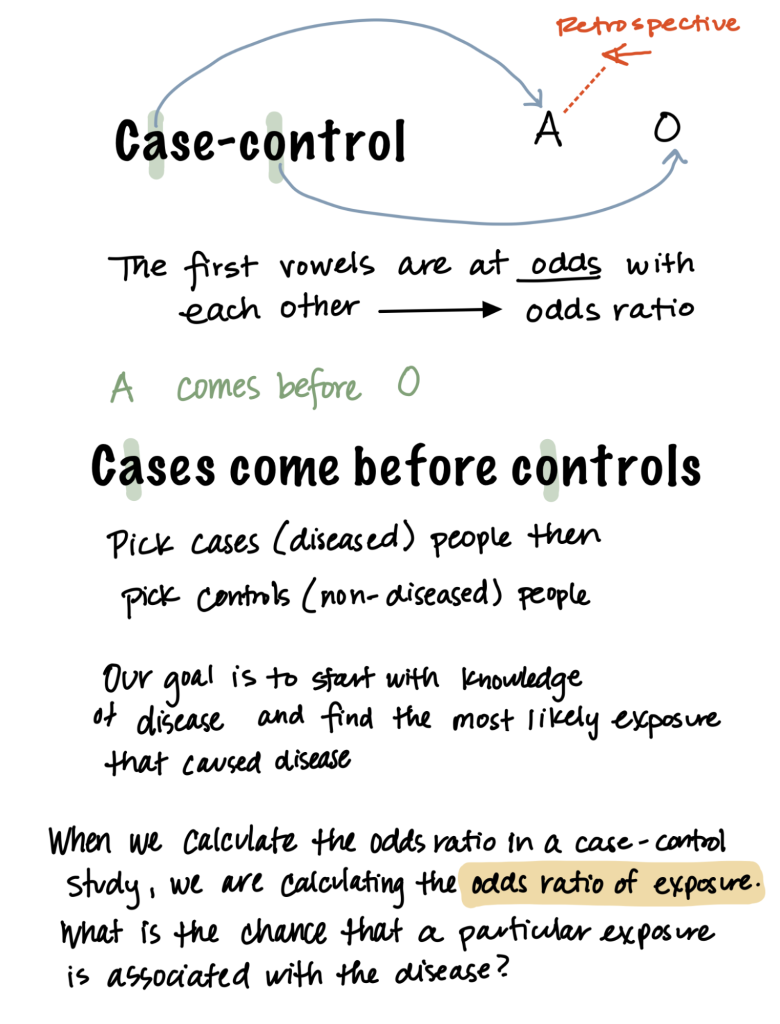 Retrospective
Case-control A O
The first vowels are at odds with
each other odds ratio
A comes before O
Cases come before controls
Pick cases (diseased) people then
pick controls (non-diseased) people
Our goal is to start with knowledge
of disease and find the most likely exposure
that caused disease
When we calculate the odds ratio in a case-control
study, we are calculating the odds ratio of exposure.
What is the chance that a particular exposure
is associated with the disease?